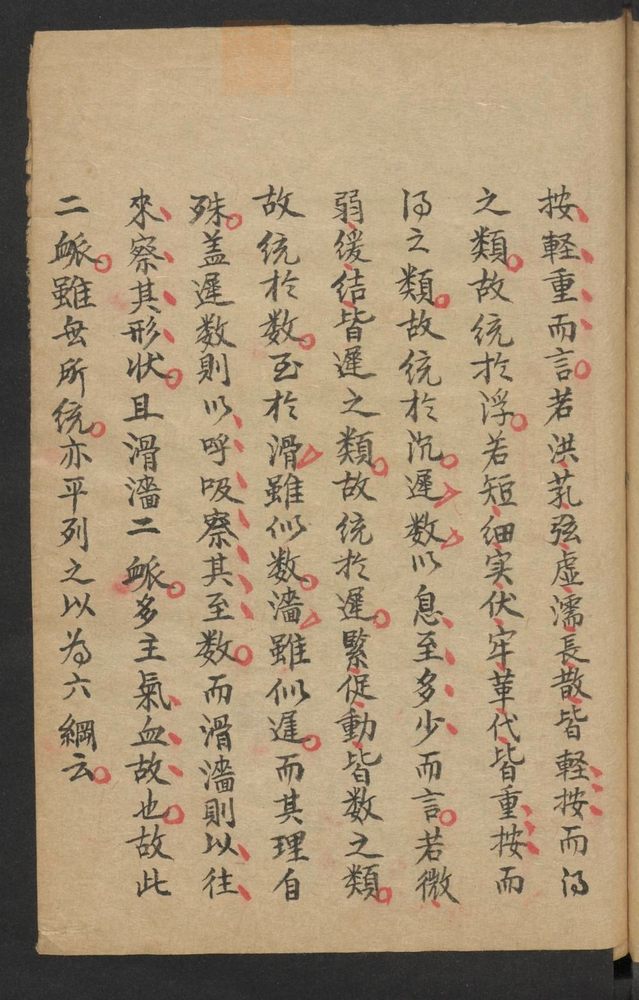 按軽重而言若洪芤弦虚濡長散皆軽按而得
之類故統於浮若短細実伏牢革代皆重按而
得之類故統於沉遲数以息至多少而言若微
弱緩結皆遲之類故統於遲緊促動皆数之類
故統於数至於滑雖似数濇雖似遲而其理自
殊盖遲数則以呼吸察其至数而滑濇則以往
來察其形状且滑濇二脈多主氣血故也故此
二脈雖無所統亦平列之以為六綱云